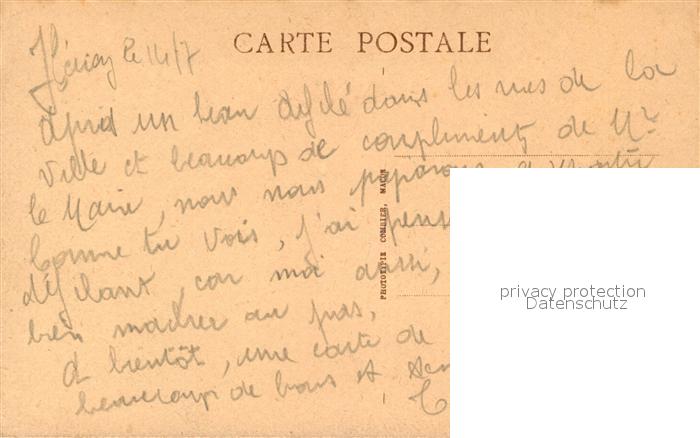 CARTE POSTALE
le 14/7
après un beau défilé dans les rues de la
ville et beaucoup de compliments de Mr
le Maire, nous nous préparons à
Comme tu vois, j'ai
défilant, car moi aussi,
bien marcher au pas,
A bientôt, une carte de
beaucoup de bons et
PHOTOTYPIE COMBIER, MACON
privacy protection
Datenschutz